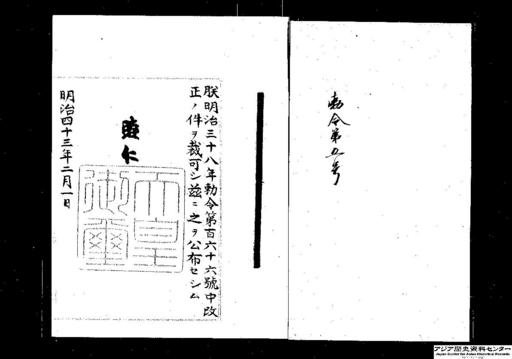 勅令第五号
朕明治三十八年勅令第百六十六號中改
正ノ件ヲ裁可シ茲ニ之ヲ公布セシム
睦仁
天皇御璽
明治四十三年二月一日
アジア歴史資料センター
Japan Center for Asian Historical Records